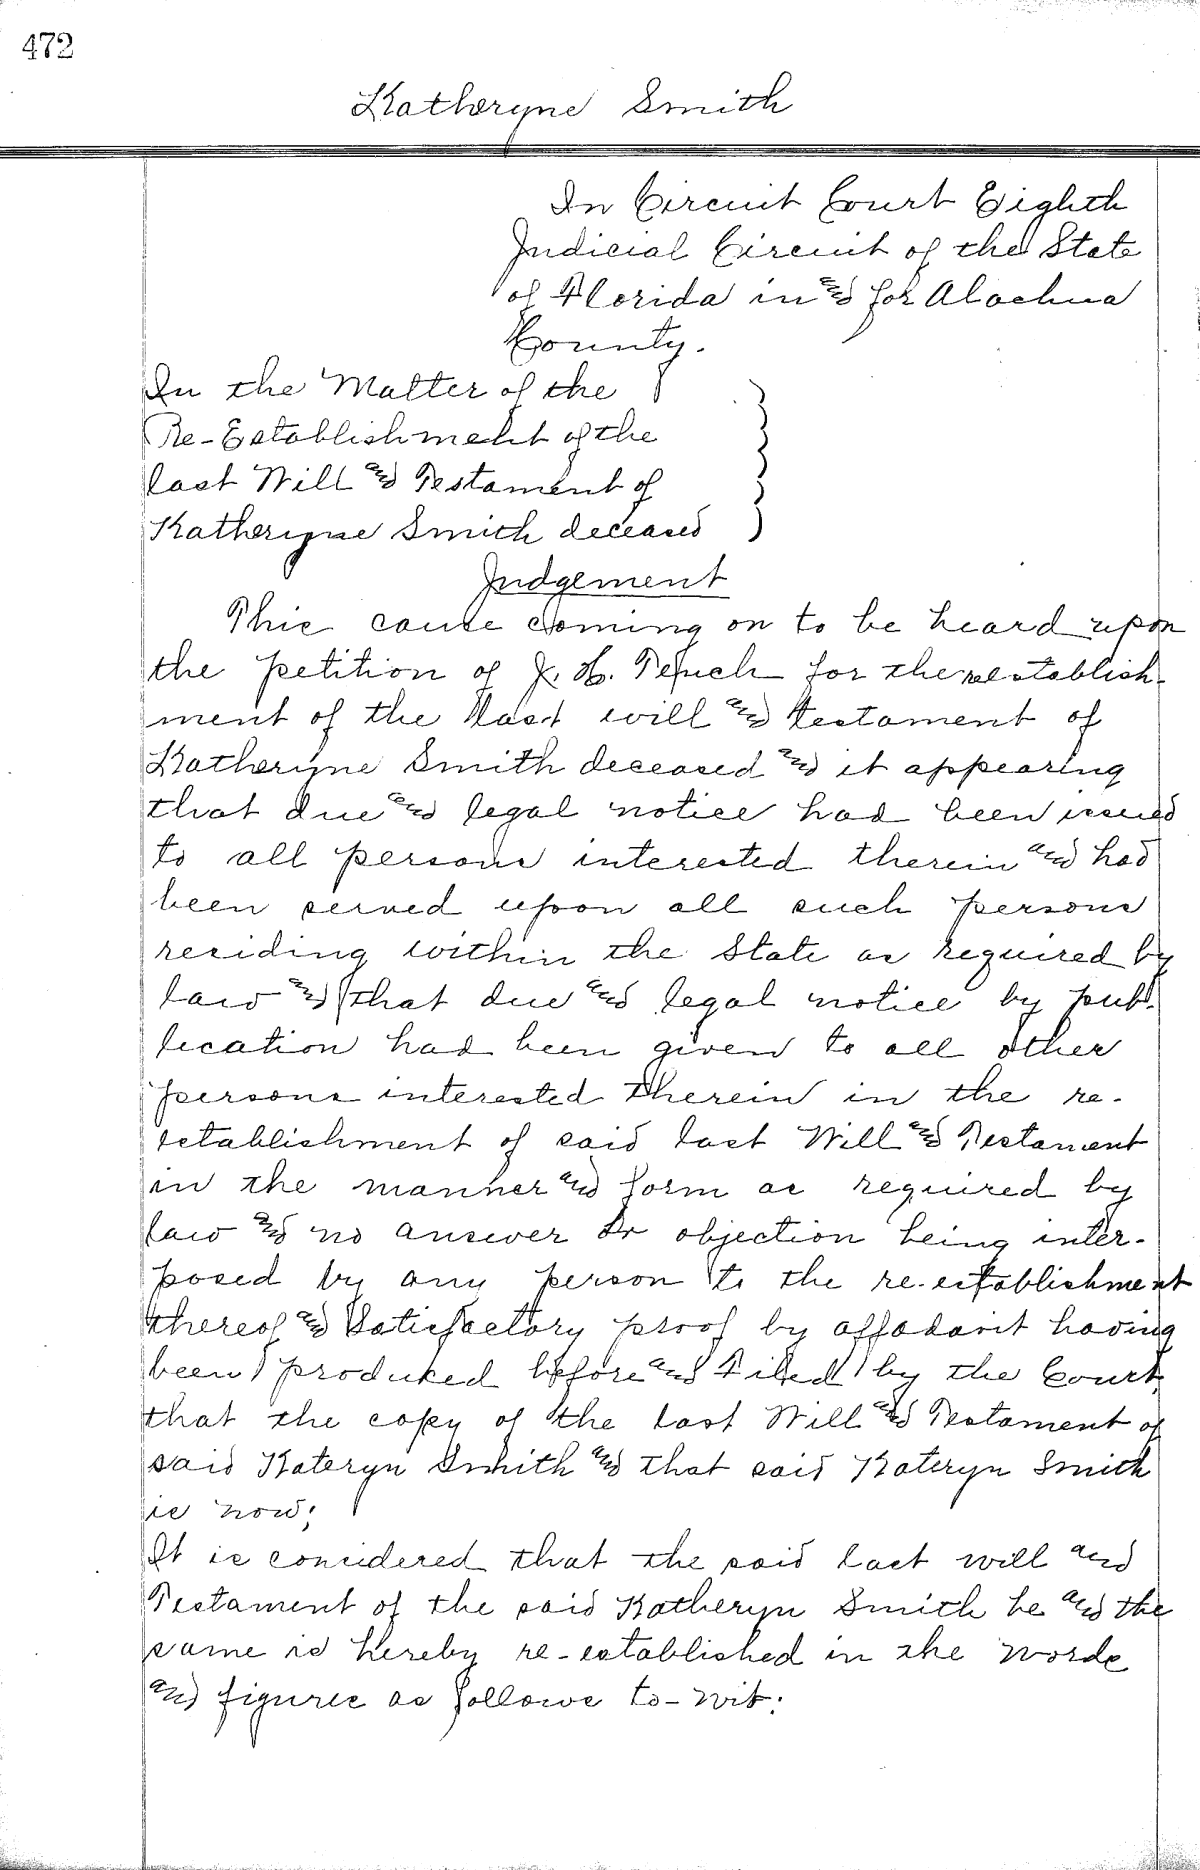 472
Katheryne Smith
In Circuit Court Eighth
Judicial Circuit of the State
of Florida in and for Alachua
County.
In the Matter of the
Re-Establishment of the
last Will and Testament of
Katheryne Smith deceased
Judgement
This cause coming on to be heard upon
the petition of J. H. Tench for the reestablish-
ment of the last will and testament of
Katheryne Smith deceased and it appearing
that due and legal notice had been issued
to all persons interested therein and had
been served upon all such persons
residing within the State as required by
law and that due and legal notice by pub-
lication had been given to all other
persons interested therein in the re-
establishment of said last Will and Testament
in the manner and form as required by
law and no answer or objection being inter-
posed by any person to the re-establishment
thereof and Satisfactory proof by affadavit having
been produced before and Filed by the Court,
that the copy of the last Will and Testament of
said Kateryn Smith and that said Kateryn Smith
is now;
It is considered that the said last will and
Testament of the said Katheryn Smith be and the
same is hereby re-established in the words
and figures as follows to-wit: